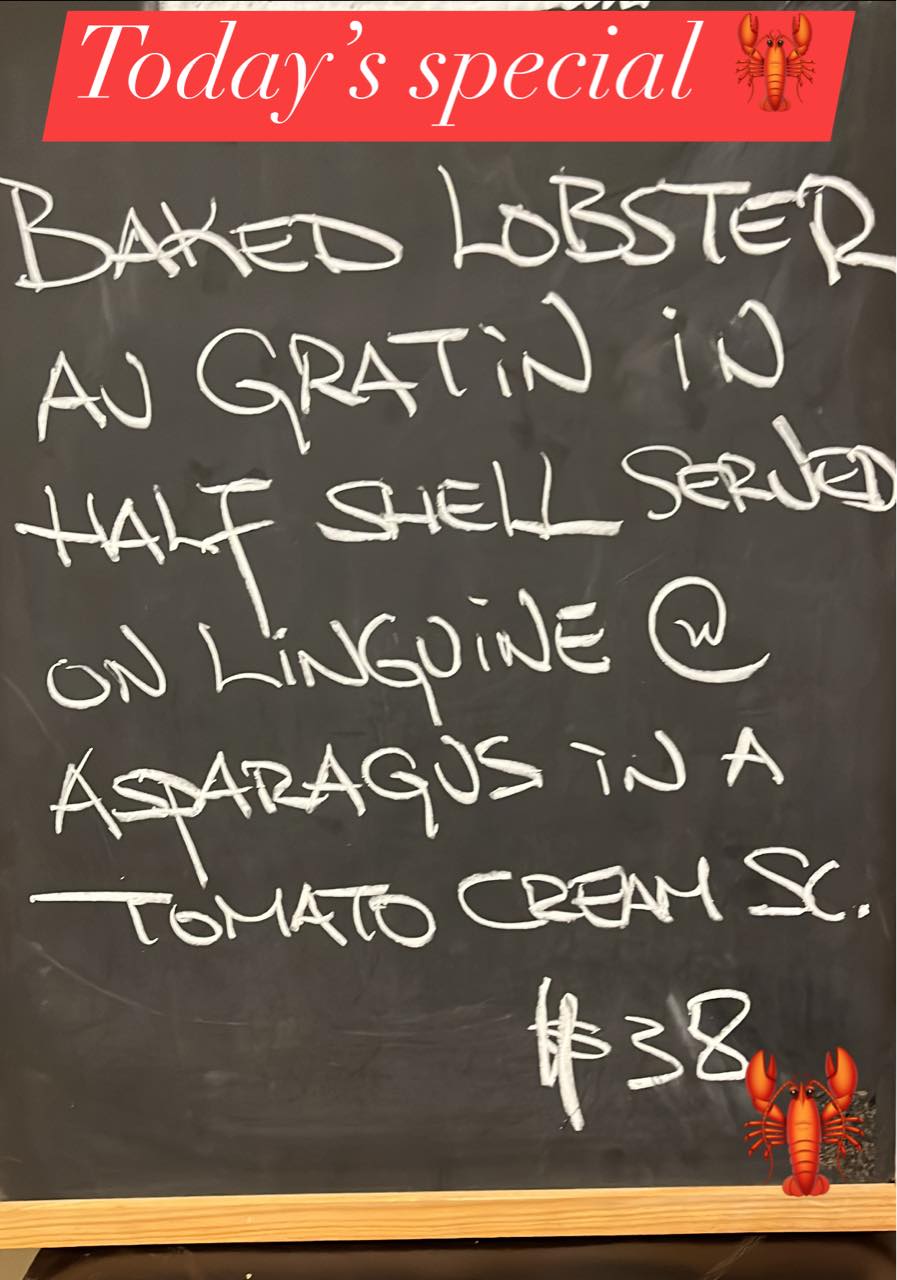 Today's special 🦞
BAKED LOBSTER
AU GRATIN IN
HALF SHELL SERVED
ON LINGUINE ⓦ
ASPARAGUS IN A
TOMATO CREAM SC.
$38